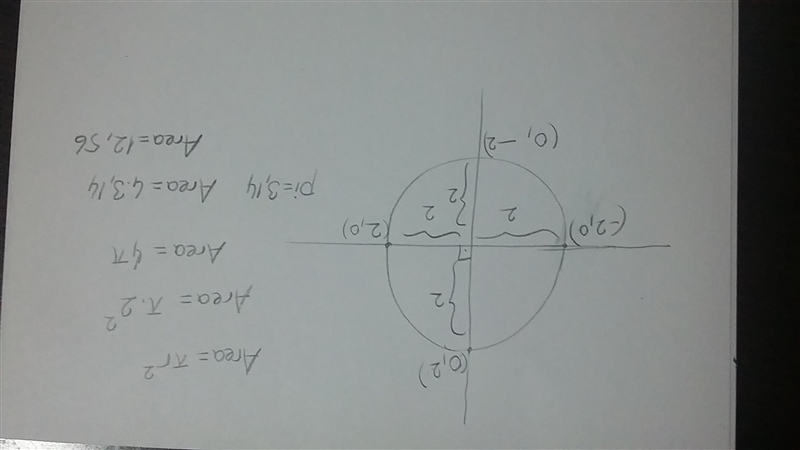 (0, 2)
2
(-2, 0)
2
2
(2, 0)
2
(0, -2)
Area = πr²
Area = π.2²
Area = 4π
pi=3,14 Area = 4.3,14
Area = 12,56